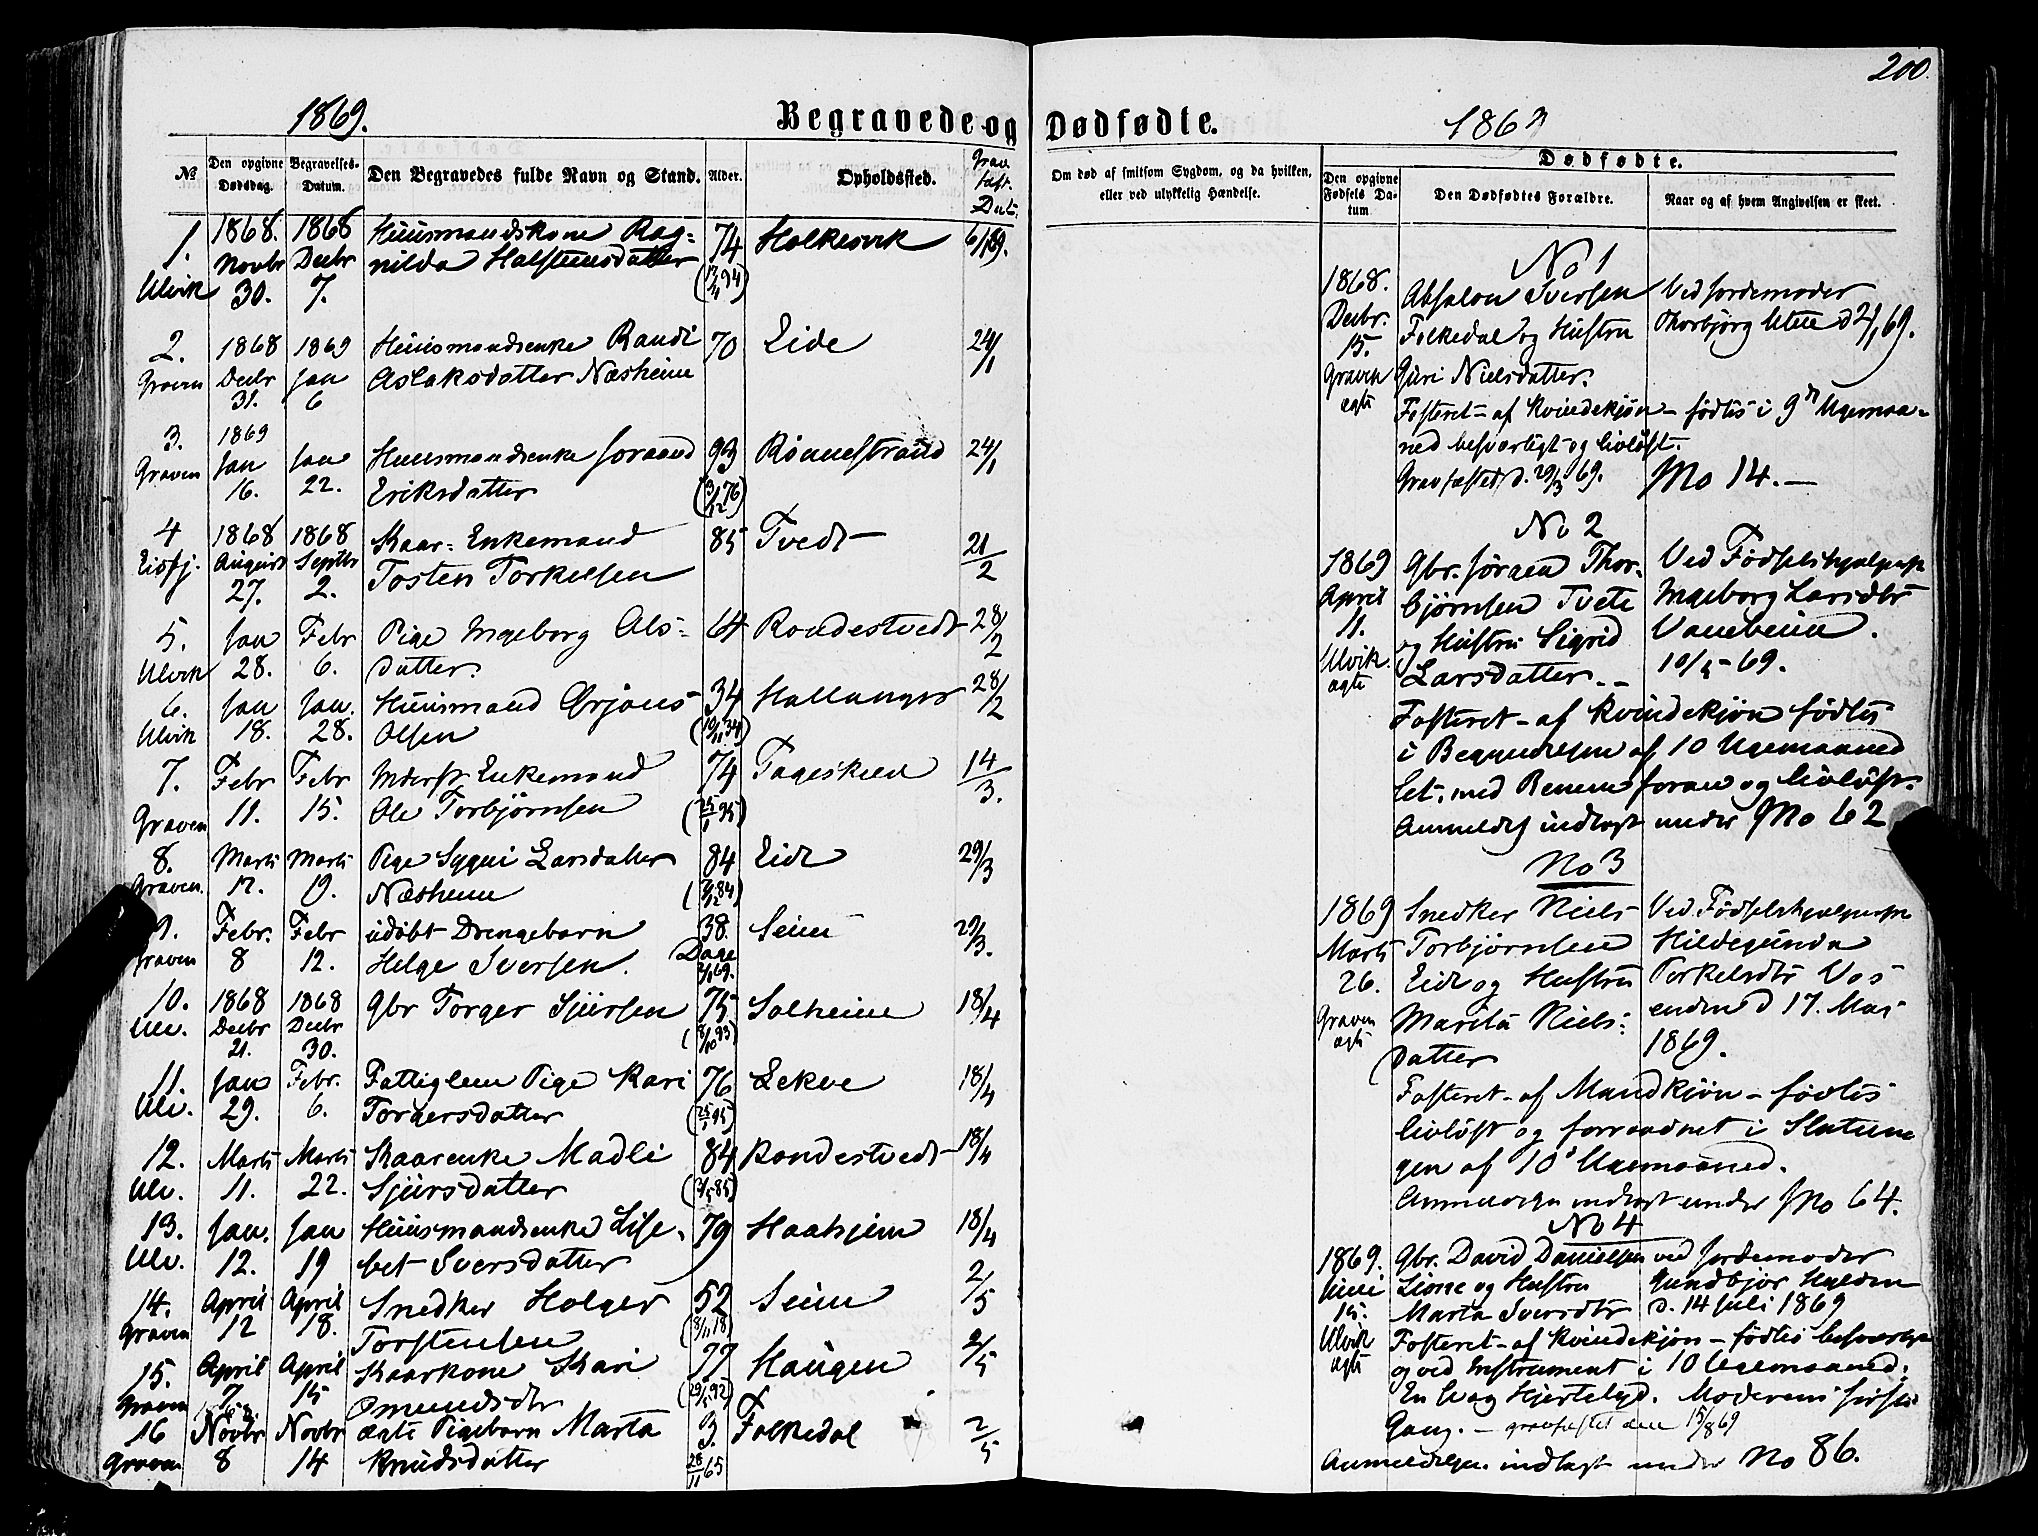 200.
1869.
Begravede og Dødfødte.
1869
№
Den opgivne Dødsdag.
Begravelses-Datum.
Den Begravedes fulde Navn og Stand.
Alder.
Opholdssted.
Grav fæst. Dat.
Om død af smitsom Sygdom, og da hvilken, eller ved ulykkelig Hændelse.
Dødfødte.
Den opgivne Fødsels Datum
Den Dødfødtes Forældre.
Naar og af hvem Angivelsen er skeet.
1. 1868. 1868 Huusmandskone Rag= 74 Holkesvik 6/1 69.
Ulvik Novbr 30. Decbr 7. nilda Halsteinsdatter (17/4 94)
2. 1868 1869 Huusmandsenke Randi 70 Eide 24/1
Graven Decbr 31. Jan 6 Aslaksdatter Næsheim
3. 1869 Jan 16. Jan 22. Huusmandsenke Joraand 93 Rønnestrand 24/1
Graven Eriksdatter (3/12 76)
4 1868 1868 Kaar=Enkemand 85 Tvedt 21/2
Eidfj. August 27. Septbr 2. Tosten Torkelsen
5. Jan Febr Pige Ingeborg Ols= 64 Rondestvedt 28/2
Ulvik 28. 6. datter.
6. Jan Jan. Huusmand Ørjans 34 Hallanger 28/2
Ulvik 18. 28. Olsen (10/11 34)
7. Febr Febr Inderst Enkemand 74 14/3.
Graven 11. 15. Ole Torbjørnsen (25/1 95)
8. Marts Marts Pige Sygni Larsdatter 84 Eide 29/3
Graven. 12. 19. Næsheim (7/12 84)
9. Febr. Febr udøbt Drengebarn 38. Seim 29/3.
Graven 8 12. Helge Iversen. Dage 2/1 69.
10. 1868 1868 Gbr Torger Sjursen 75 Solheim 18/4
Ulv. Decbr 21. Decbr 30. (8/10 93)
11. Jan Febr. Fattiglem Pige Kari 76 Lekve 18/4
Ulv. 29. 6. Torgersdatter (25/1 95)
12. Marts Marts Kaarenke Madli 84 Rondestvedt 18/4
Ulv. 11. 22. Sjursdatter (3/5 85)
13. Jan. Jan Huusmandsenke Lise= 79 Haaheim 18/4
Ulv. 12. 19 bet Iversdatter
14. April April Snedker Holger 52 Seim 2/5
Graven 12 18. Torstensen (8/11 18)
15. April April Kaarkone Kari 77 Haugen 2/5
Graven 7. 15 Omundsdtr (29/5 92)
16 Novbr Novbr ægte Pigebarn Marta 3. Folkedal 2/5
Graven 8 14 Knudsdatter 28/11 65
No 1
1868. Absalon Iversen Ved Jordemoder
Decbr. 15. Folkedal og Hustru Thorbjørg d 2/1 69.
Graven ægte Guri Nielsdatter.
Fosteret - af Kvindekjøn - fødtes i 9de Ugemaa=
ned besværligt og livløst.
Gravfæstet d. 29/3 69. No 14. —
No 2
1869 Gbr. Jørgen Thor= Ved Fødselshjælpersk
April bjørnsen Tvete Ingeborg Larsdtr
11. og Hustru Sigrid Vambheim.
Ulvik. ægte Larsdatter. — 10/5 - 69.
Fosteret - af Kvindekjøn fødtes
i Begyndelsen af 10 Ugemaaned
let, med Benene foran og livløst.
Anmeldes indlagt under No 62
No 3
1869 Snedker Niels Ved Fødselshjælpersk
Marts Torbjørnsen Hildegunda
26. Eide og Hustru Torkelsdtr Vos
Graven ægte Marita Niels= enden d 17. Mai
datter 1869.
Fosteret - af Mandkjøn - fødtes
livløst og forraadnet i Slutnin
gen af 10 Ugemaaned.
Anmeldelsen indlagt under No 64.
No 4
1869. Gbr. David Danielsen ved Jordemoder
Juni Lione og Hustru Gundbjør
15. Marta Iversdtr d. 14 Juli 1869
Ulvik ægte Fosteret - af Kvindekjøn - fødtes besværligt
og ved Instrument i 10 Ugemaaned.
En svag Hjertelyd. Moderens første
Gang. — gravfæstet den 15/8 69
Anmeldelsen indlagt under No 86.